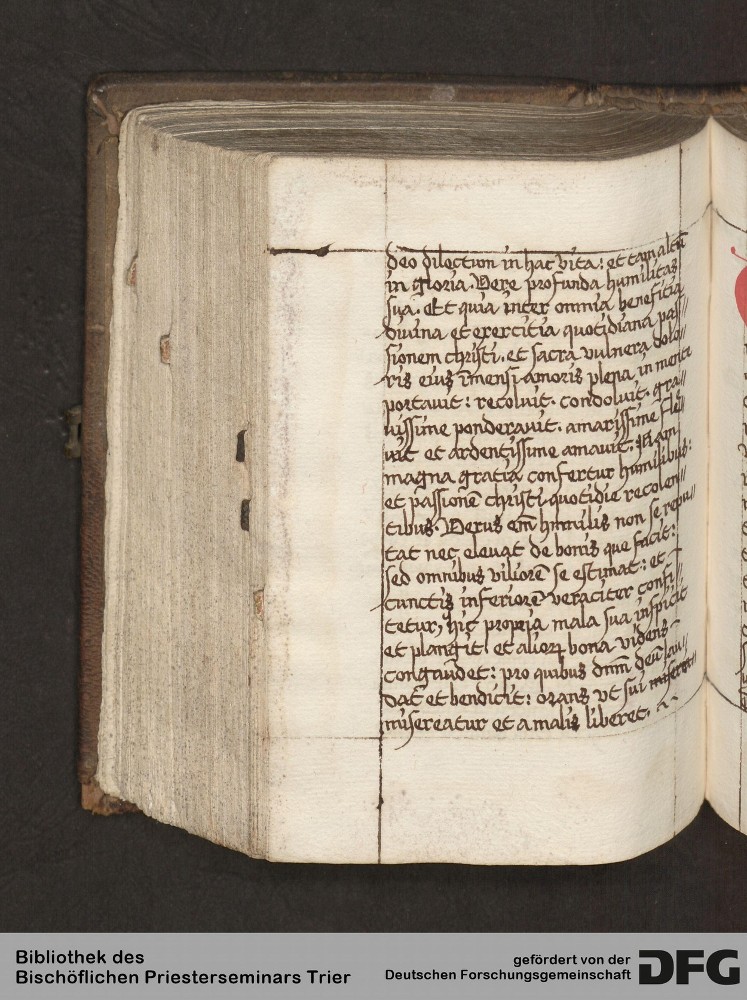 deo dilectum in hac vita: et tam altū
in gloria. Vere profunda humilitas
sua. Et quia inter omnia beneficia
divina et exercitia quotidiana pas//
sionem christi. et sacra vulnera dolo//
ris eius īmensi amoris plena in mente
portavit: recoluit. condoluit. gra//
vissime ponderavit. amarissime fle//
vit et ardentissime amavit. Nam
magna gratia confertur humilibus:
et passionē christi quotidie recolen//
tibus. Verus em̄ humilis non se repu//
tat nec elevat de bonis que facit:
sed omnibus viliorē se estimat: et
cunctis inferiorē veraciter confi//
tetur, hic propria mala sua inspicit
et plangit et aliorꝝ bona videns
congaudet: pro quibus dn̄m deū lau//
dat et bendicit: orans vt sui
misereatur et a malis liberet.
Bibliothek des
Bischöflichen Priesterseminars Trier
gefördert von der
Deutschen Forschungsgemeinschaft
DFG